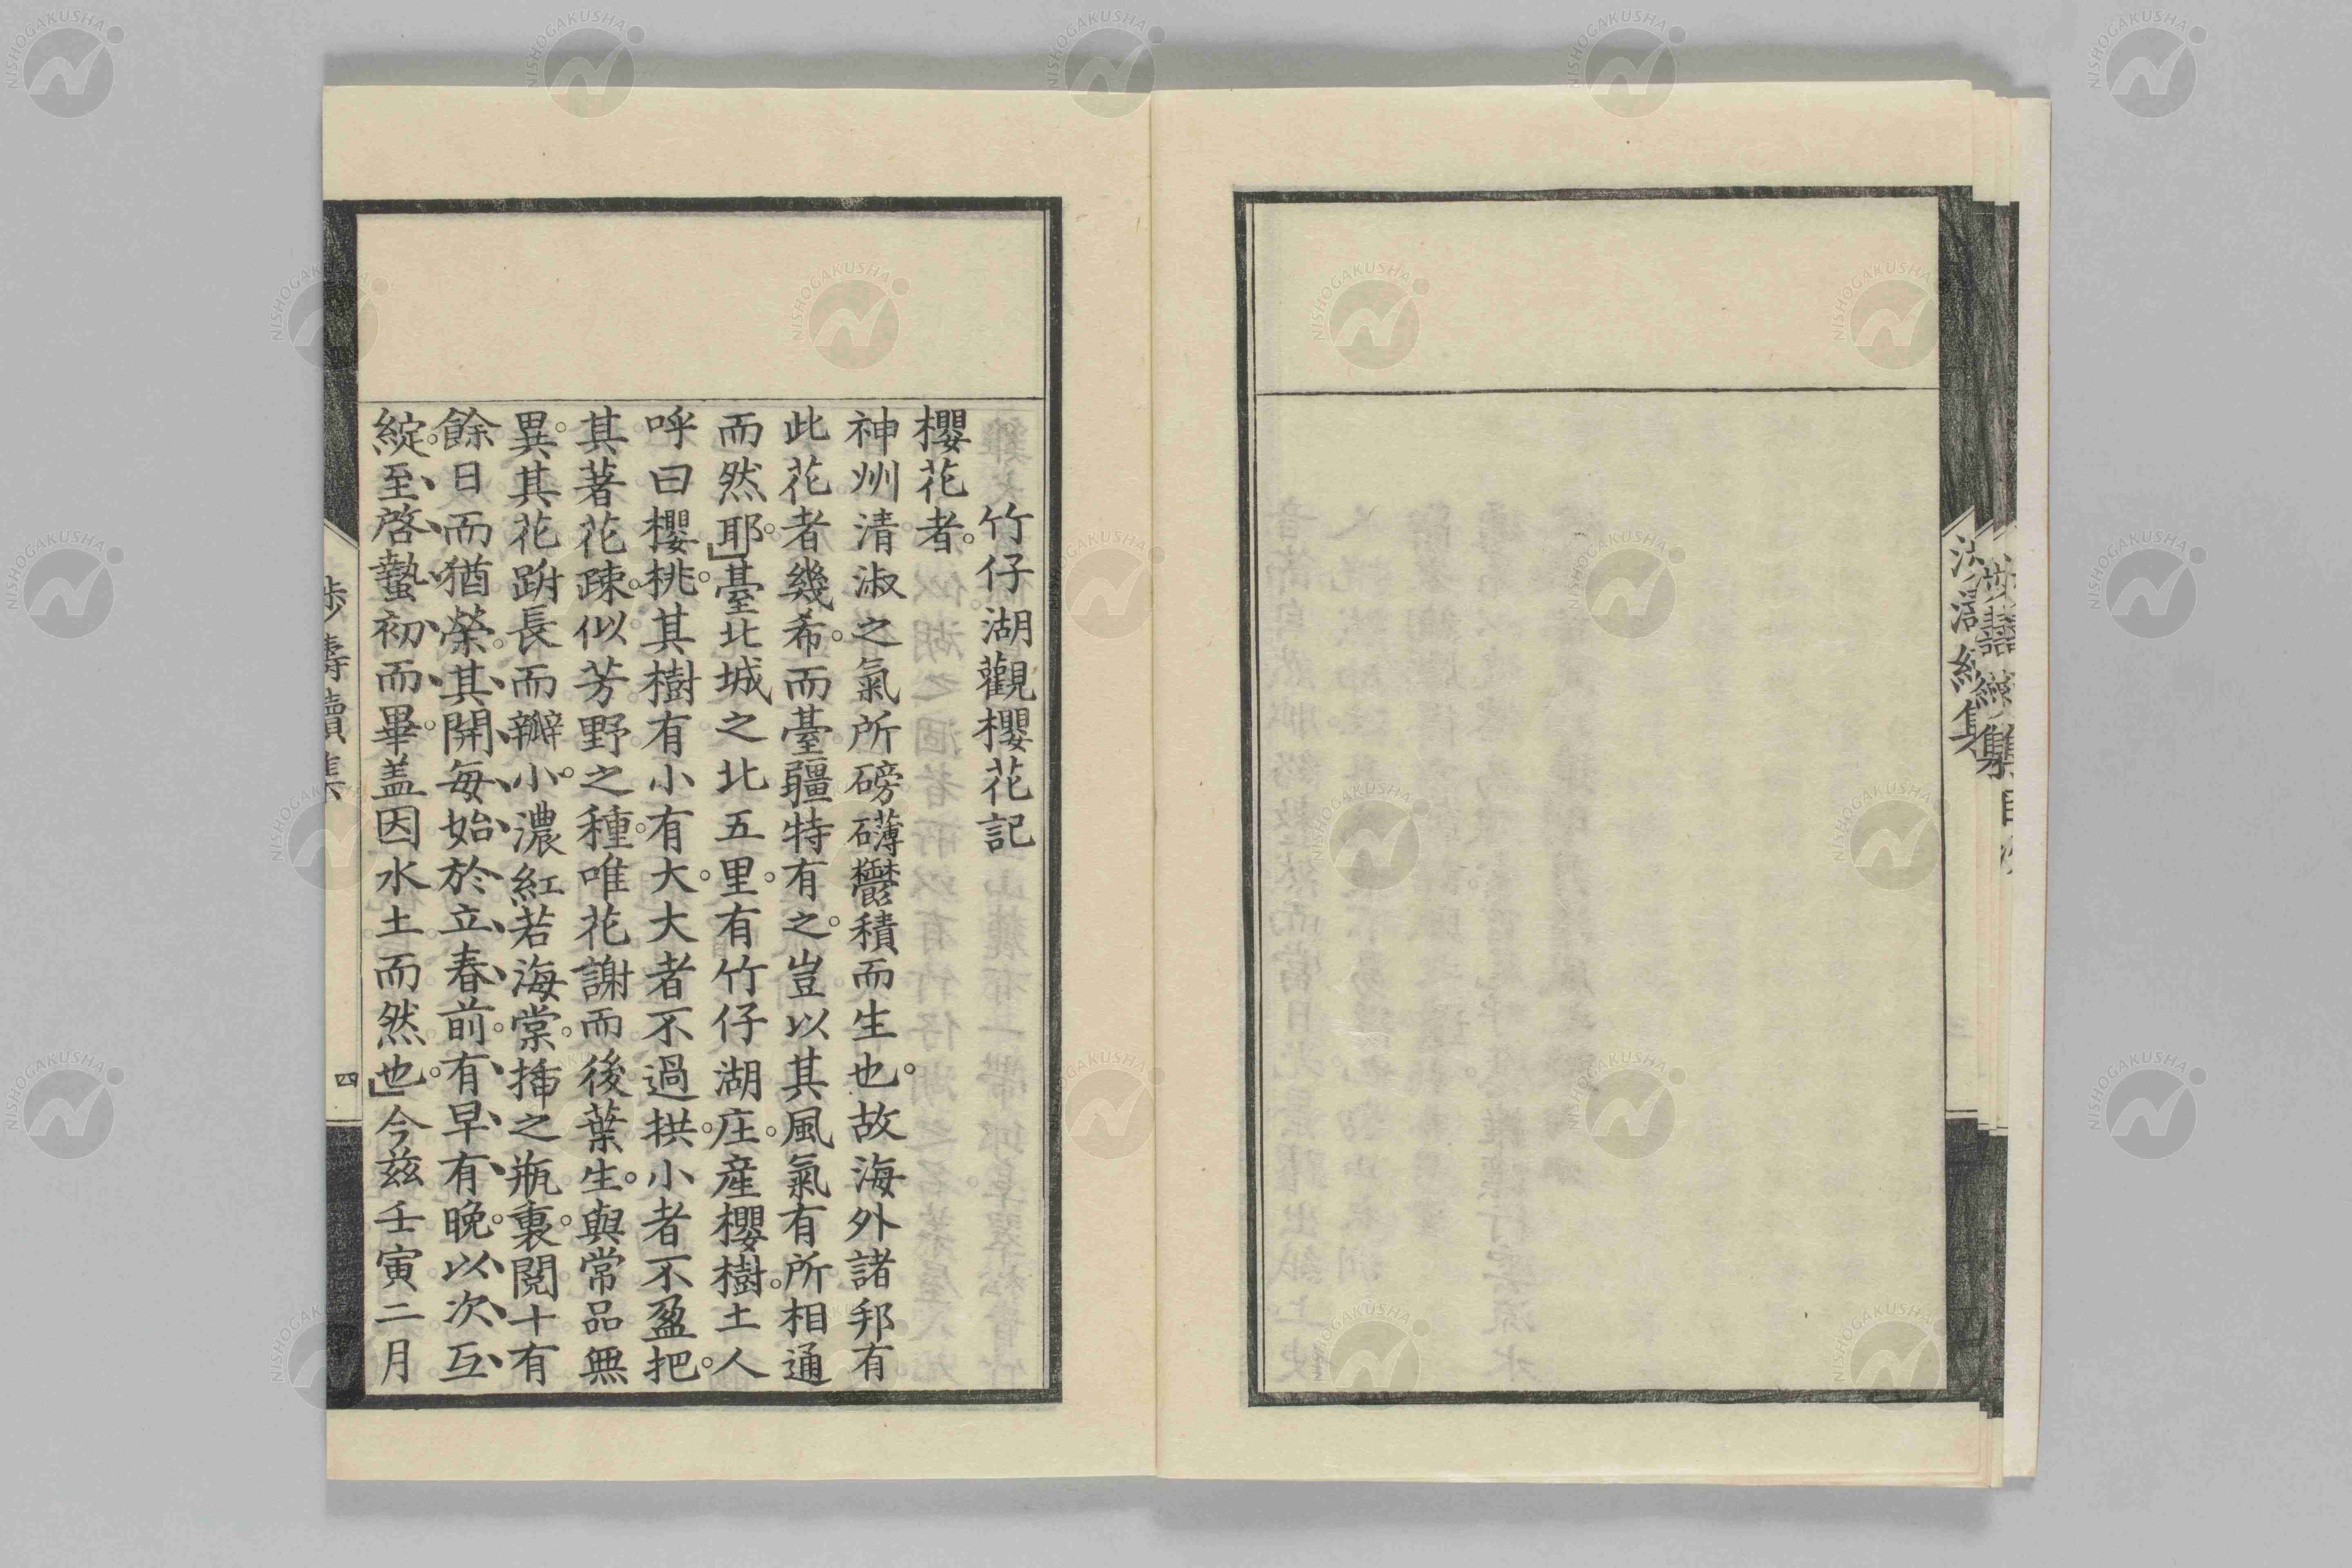 竹仔湖觀櫻花記
櫻花者。
神州清淑之氣所磅礴鬱積而生也。故海外諸邦有
此花者幾希。而臺疆特有之。豈以其風氣有所相通
而然耶。」臺北城之北五里。有竹仔湖庄。產櫻樹。土人
呼曰櫻桃。其樹有小有大。大者不過拱。小者不盈把。
其著花疎。似芳野之種。唯花謝而後葉生。與常品無
異。其花跗長而瓣小。濃紅若海棠。揷之瓶裏。閱十有
餘日而猶榮。其開每始於立春前。有早有晚。以次互
綻。至啓蟄初而畢。盖因水土而然也。」今茲壬寅二月
四
NISHOGAKUSHA